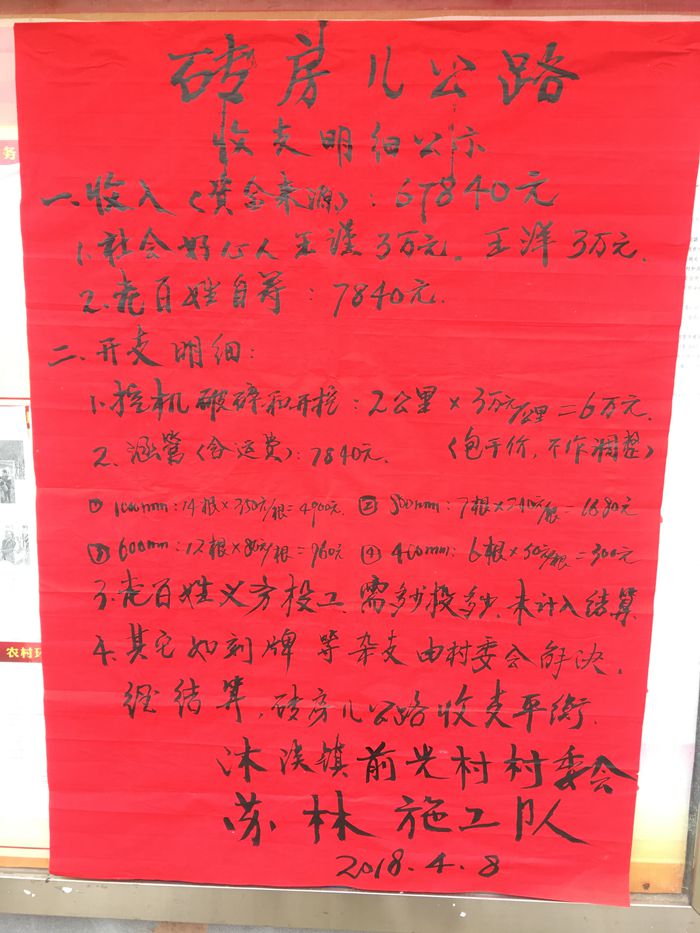 砖房儿公路
收支明细公示
一、收入(资金来源):67840元
1.社会好心人王谨3万元。王洋3万元.
2.老百姓自筹:7840元.
二、开支明细:
1.挖机破碎和开挖:2公里×3万元/公里=6万元.
(包干价,不作调整)
2.涵管(含运费):7840元.
①1000mm:14根×350元/根=4900元 ②800mm:7根×240元/根=1680元
③600mm:12根×80元/根=960元 ④400mm:6根×50元/根=300元
3.老百姓义务投工需多少投多少.未计入结算
4.其它如刻牌等杂支由村委会解决.
经结算,砖房儿公路收支平衡.
沐溪镇前光村村委会
苏林施工队
2018.4.8
务
农村环